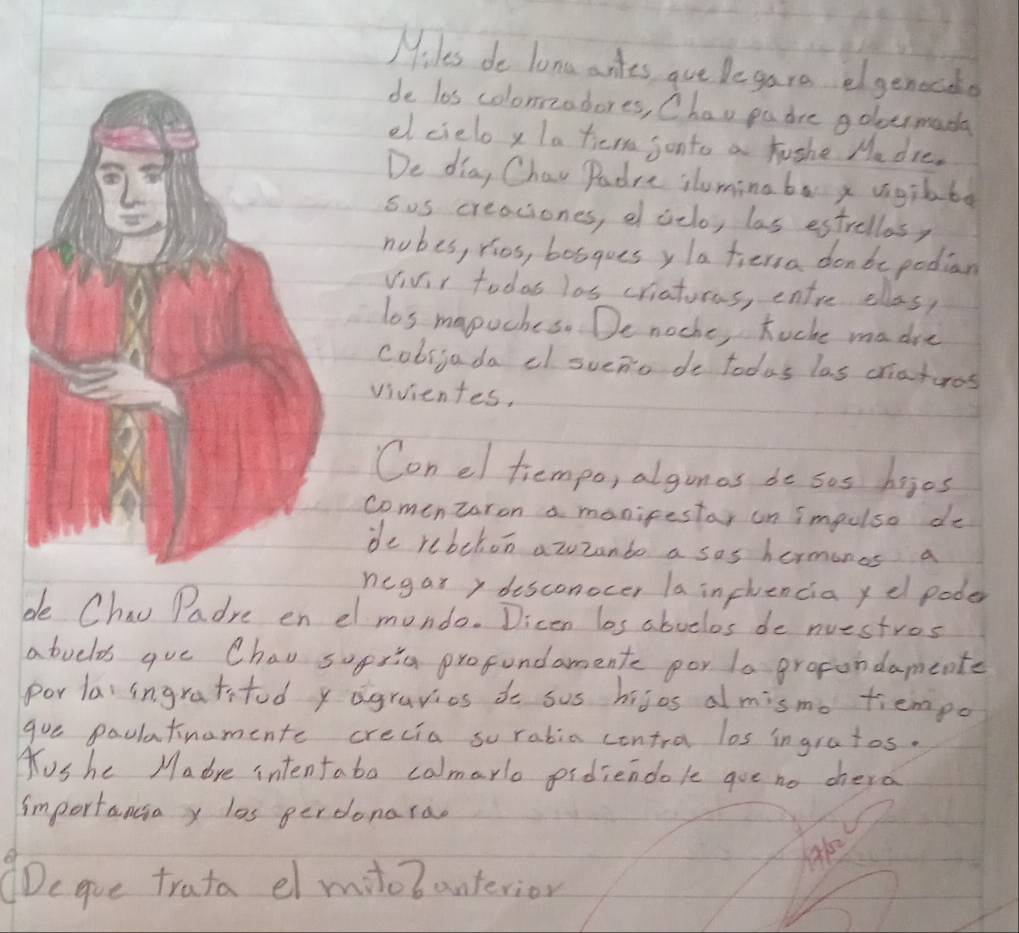 Miles de luna antes que llegara el genocidio
de los colonizadores, Chau padre gobermada
el cielo y la tierra junto a Kushe Madre.
De día, Chau Padre iluminaba y vigilaba
sus creaciones, el cielo, las estrellas,
nubes, ríos, bosques y la tierra donde podian
vivir todas las criaturas, entre ellas,
los mapuches. De noche, Kuche madre
cobijada el sueño de todas las criaturas
vivientes.
Con el tiempo, algunos de sus hijos
comenzaron a manifestar un impulso de
de rebelión azuzanbo a sus hermanos a
negar y desconocer la influencia y el poder
de Chau Padre en el mundo. Dicen los abuelos de nuestros
abuelos que Chau supría profundamente por la profundamente
por la ingratitud y agravios de sus hijos al mismo tiempo
que paulatinamente crecía su rabia contra los ingratos.
Kushe Madre intentaba calmarlo pidiéndole que no diera
importancia y los perdonara.
¿De que trata el mito? anterior